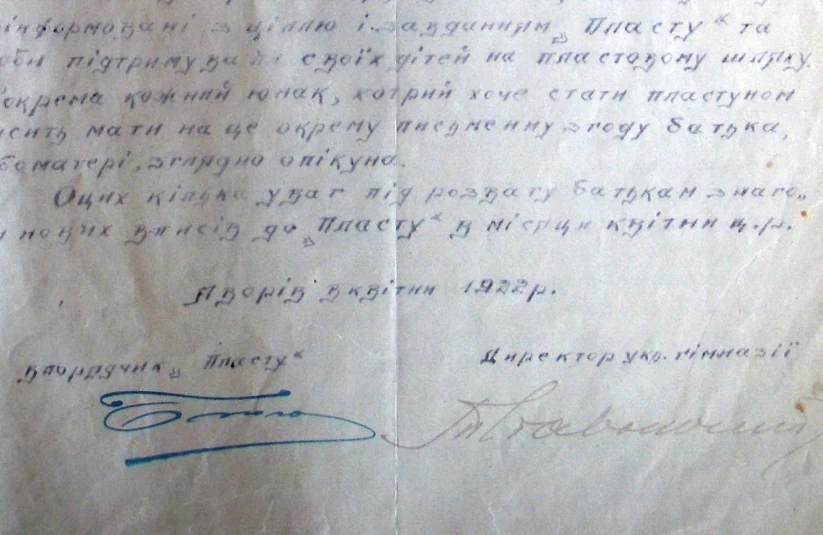 інформовані з ціллю і завданням „Пласту“ та
оби підтримували своїх дітей на пластовому шляху.
окрема кожний юнак, котрий хоче стати пластуном
сить мати на це окрему письменну згоду батька,
бо матері, зглядно опікуна.
Оцих кілька уваг під розвагу батькам з наго„
нових вписів до „Пласту“ в місяци квітни ц.р.
Яворів в квітни 1922р.
впорядчик „Пласту“
Директор укр. гімназії